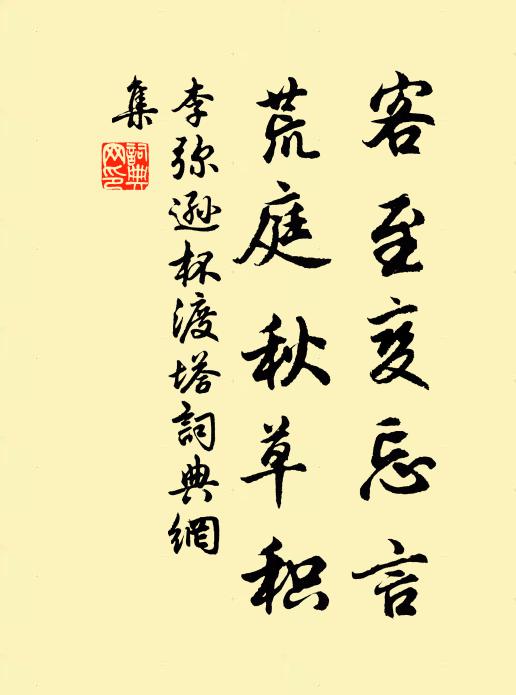 客至忘言
荒庭秋草积
李弥遜杯渡塔詞典網
集
詞典
网印